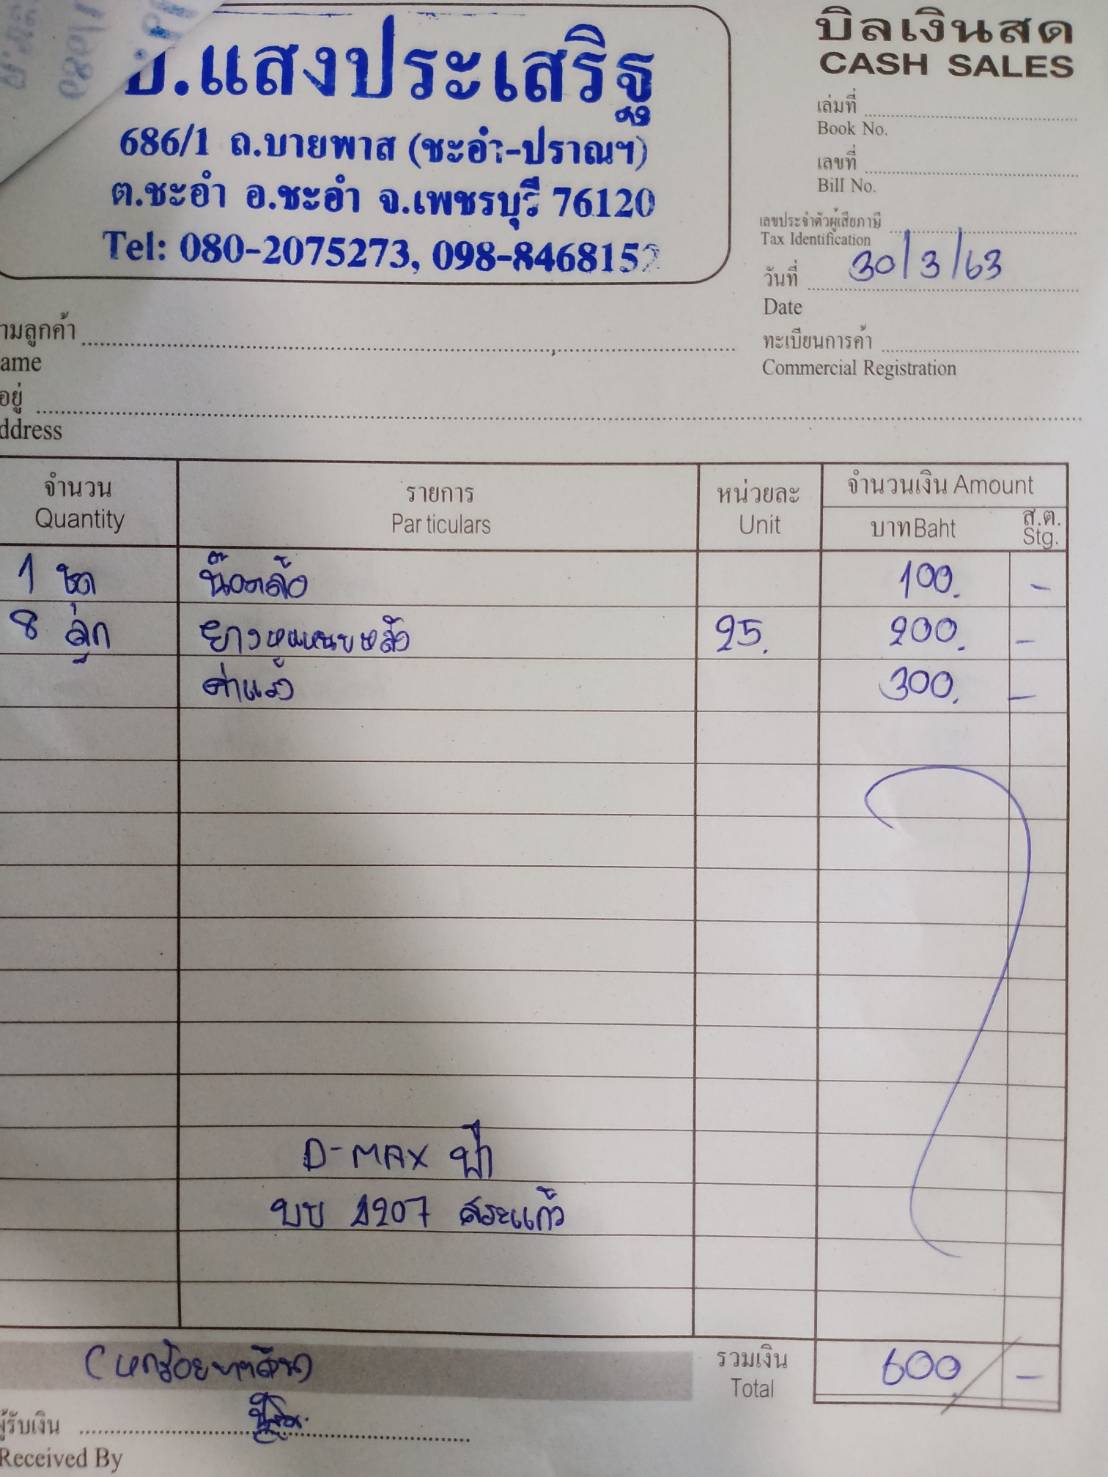 บิลเงินสด
CASH SALES
.แสงประเสริฐ
686/1 ถ.บายพาส (ชะอำ-ปราณฯ)
ต.ชะอำ อ.ชะอำ จ.เพชรบุรี 76120
Tel: 080-2075273, 098-846815
เล่มที่
Book No.
เลขที่
Bill No.
เลขประจำตัวผู้เสียภาษี
Tax Identification
วันที่ 30/3/63
Date
ทะเบียนการค้า
Commercial Registration
ามลูกค้า
ame
อยู่
ddress
จำนวน รายการ หน่วยละ จำนวนเงิน Amount
Quantity Particulars Unit บาท Baht ส.ต. Stg.
1 ชุด น๊อตล้อ 100. -
8 ลูก ยางหูแหนบหลัง 25. 200. -
ค่าแรง 300. -
D-MAX
บบ 1207 สระแก้ว
(หกร้อยบาทถ้วน) รวมเงิน 600 -
Total
ผู้รับเงิน
Received By